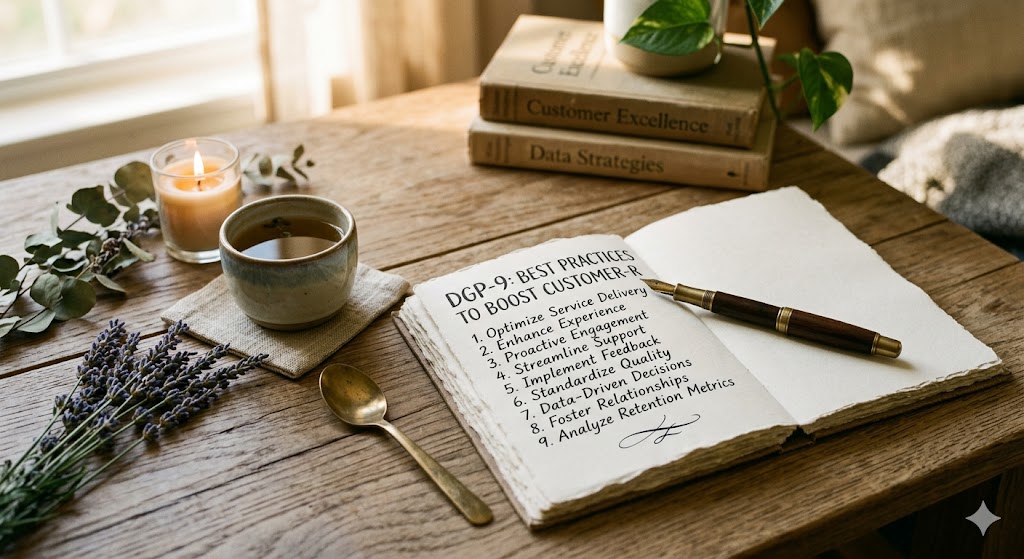 Customer Excellence
Data Strategies
DGP-9: BEST PRACTICES
TO BOOST CUSTOMER-R
1. Optimize Service Delivery
2. Enhance Experience
3. Proactive Engagement
4. Streamline Support
5. Implement Feedback
6. Standardize Quality
7. Data-Driven Decisions
8. Foster Relationships
9. Analyze Retention Metrics